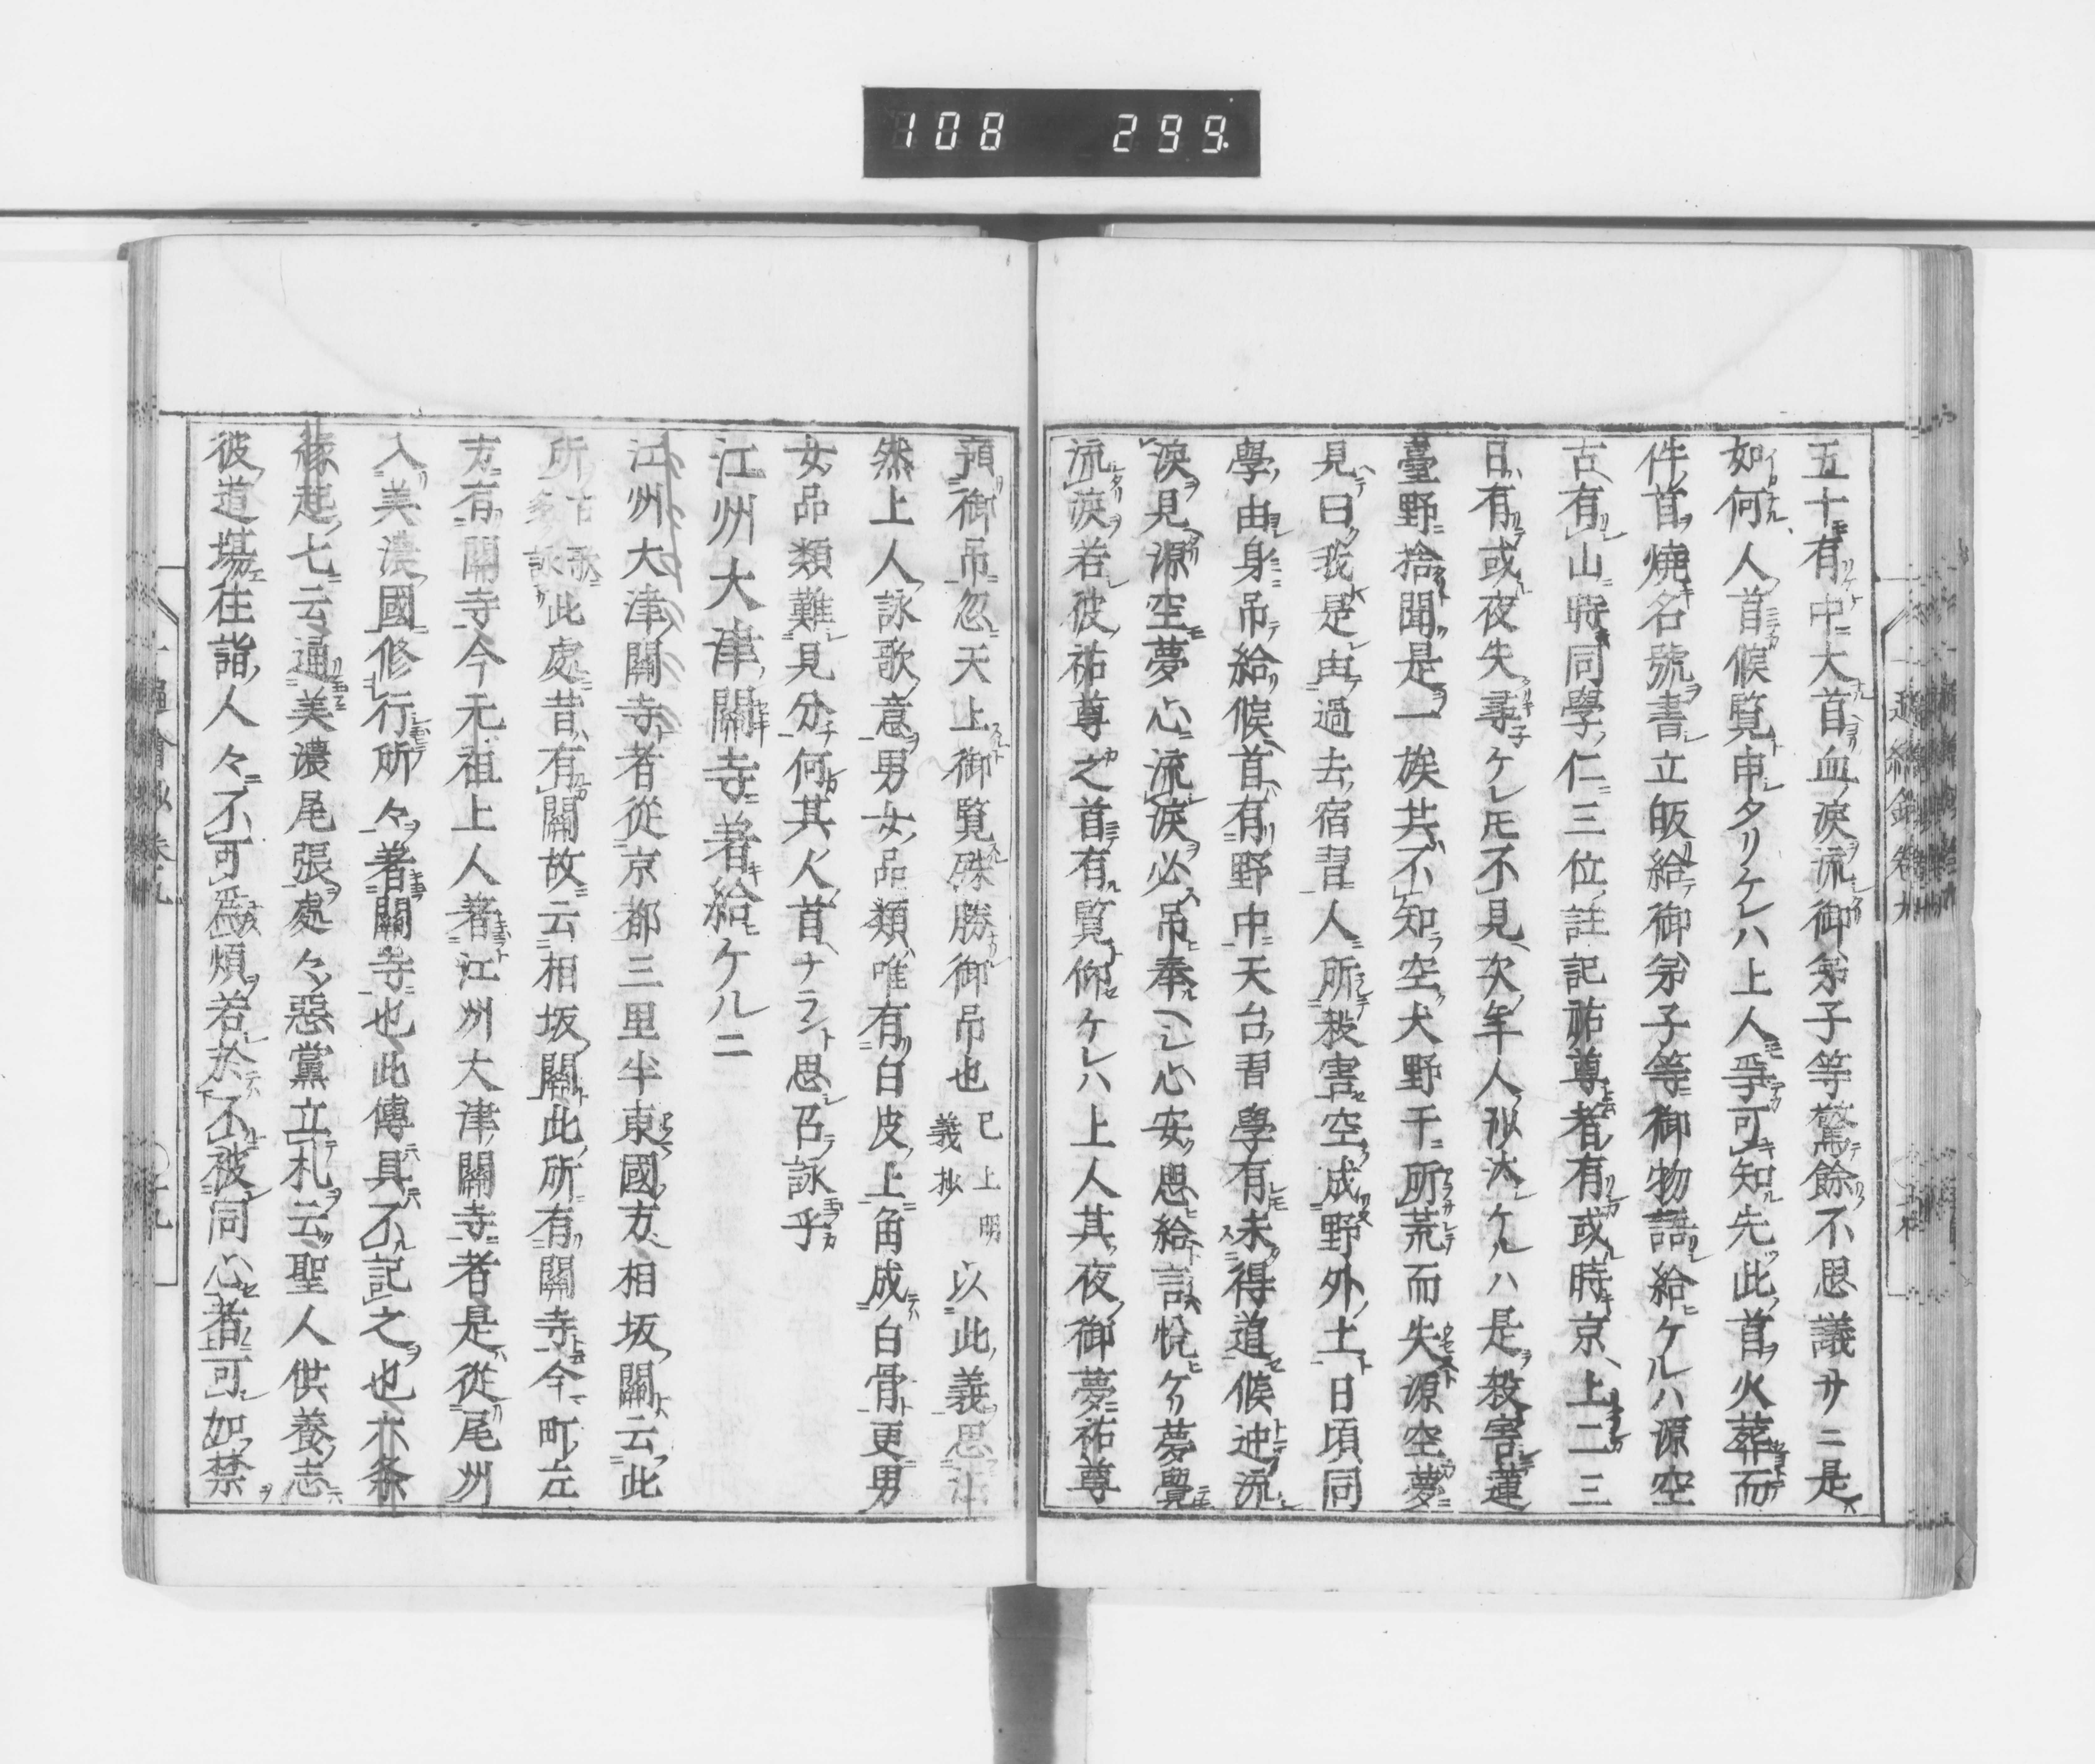 108 299
五十有中大首血淚流御弟子等驚餘不思議サニ是
如何人首候覧申タリケレハ上人爭可知先此首火葬而
件首燒名號書立皈給御弟子等御物語給ケルハ源空
古有山時同學仁三位註記祐尊者有或時京上二三
日有或夜失尋ケレ𪜈不見次年人似汰ケルハ是殺害蓮
臺野捨聞是一族共不知空犬野干所荒而失源空夢
見曰我是由過去宿習人所殺害空成野外土日頃同
學由身吊給候首有野中天台習學有未得道候迚流
淚見源空夢心流淚必吊奉ヘシ心安思給言悅ケリ夢覺
流淚若彼祐尊之首有覧仰ケレハ上人其夜御夢祐尊
預御吊忽天上御覧殊勝御吊也 已上 義抄 以此義思
然上人詠歌意男女品類唯有白皮上角成白骨更男
女品類難見分何其人首ナラント思召詠乎
江州大津關寺著給ケルニ
江州大津關寺者從京都三里半東國方相坂關云此
所 古歌多詠 此處昔有關故云相坂關此所有關寺今町左
方有關寺今元祖上人著江州大津關寺者是從尾州
入美濃國修行所々著關寺也此傳具不記之也六条
緣起七云通美濃尾張處々惡黨立札云聖人供養志
彼道場往詣人々不可爲煩若於不被同心者可如禁